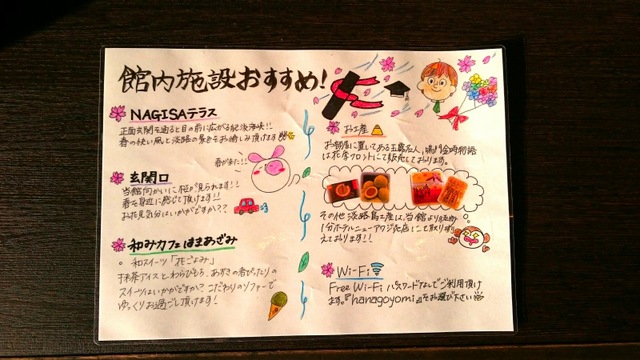 館内施設おすすめ!
NAGISAテラス
正面玄関を通ると目の前に広がる紀淡海峡!!
春の快い風と淡路の景色をお楽しみ頂けます
春が来た!!
玄関口
当館向かいに桜が見られます!!
春を身近に感じて頂けます!!
お花見気分はいかがですか??
和みカフェはまあざみ
○ 和スイーツ「花ごよみ」
抹茶アイスとわらびもち、あずきの君ぴったりの
スイーツはいかがですか?こだわりのソファーで
ゆっくりお過ごし頂けます!
お土産
お部屋に置してある玉露名人、鳴門金時物語
は花季フロントにて販売しております。
その他 淡路島土産は、当館より徒歩
1分ホテルニューアワジ売店にて取り揃
えております!!
Wi-Fi
Free Wi-Fi パスワードなしでご利用頂け
ます。『hanagoyomi』をお選び下さい